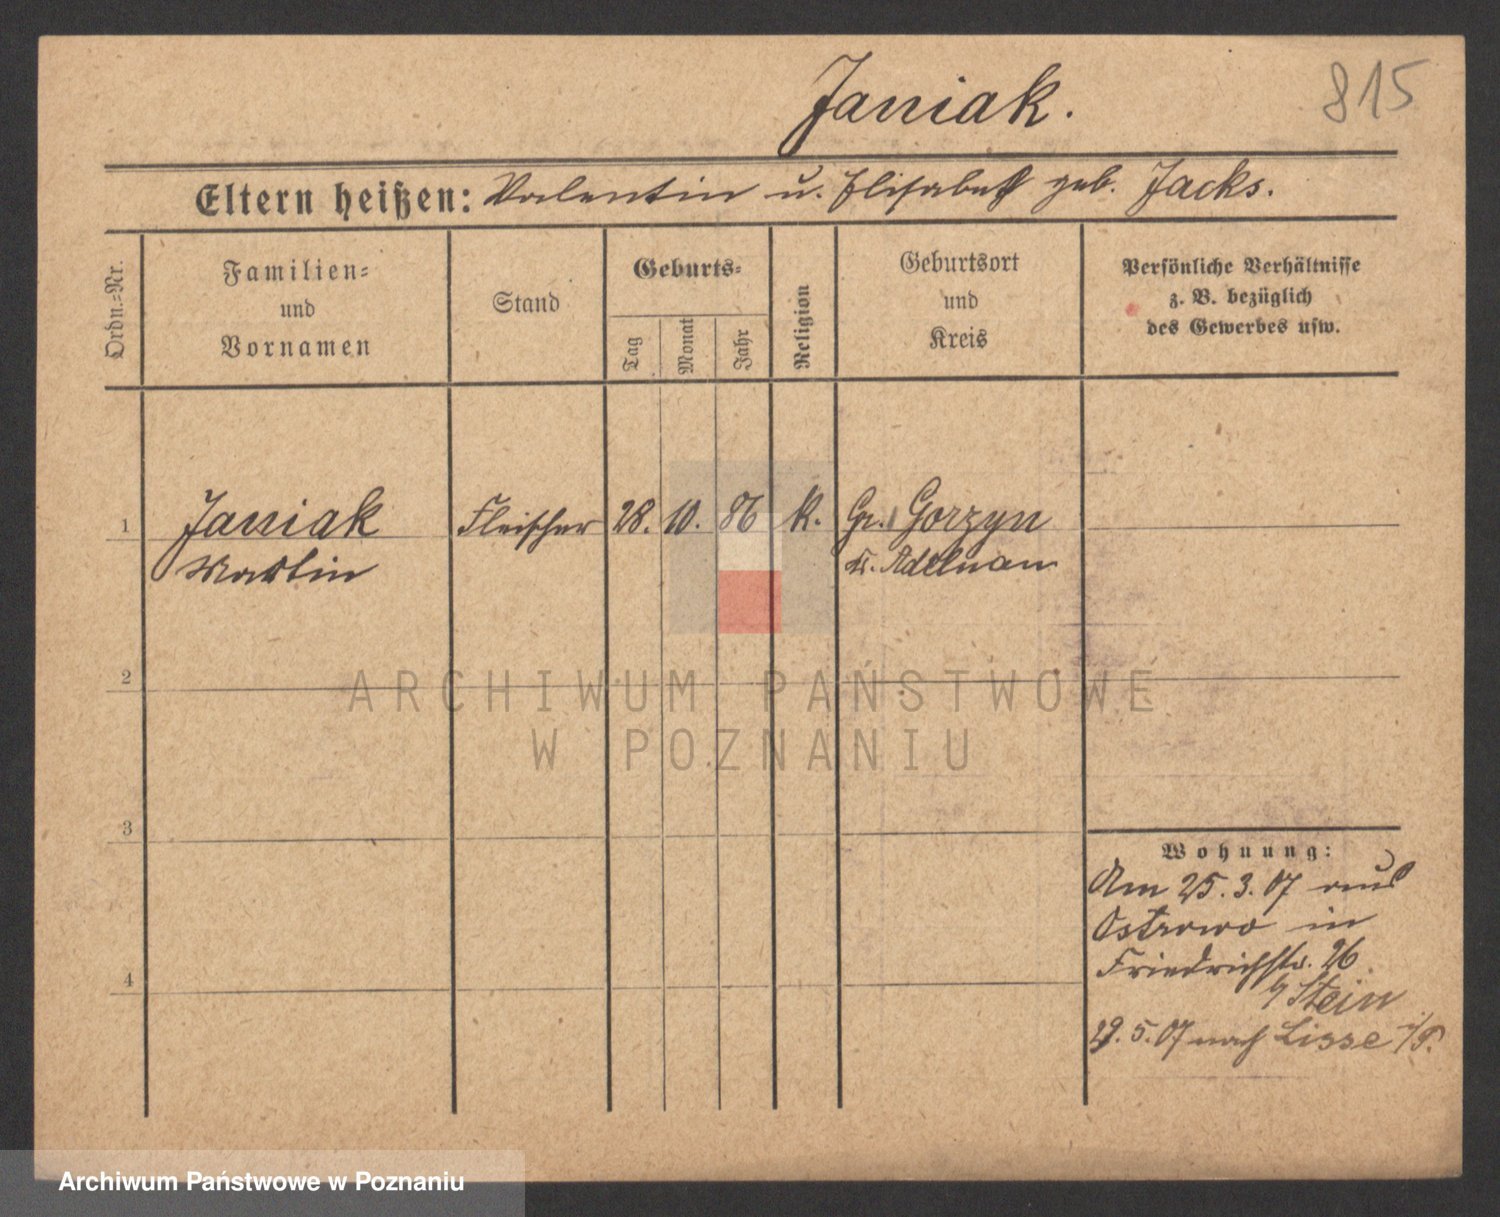 Janiak.
815
Eltern heißen: Valentin u. Elisabeth geb. Jacks.
Ordn.-Nr.
Familien-
und
Vornamen
Stand
Geburts-
Tag
Monat
Jahr
Religion
Geburtsort
und
Kreis
Persönliche Verhältnisse
z. B. bezüglich
des Gewerbes usw.
1 Janiak Fleischer 28. 10. 86 K. Gr. Gorzyn
Martin Kr. Adelnau
2
ARCHIWUM PAŃSTWOWE
W POZNANIU
3
Wohnung:
Am 25.3.07 aus
Ostrowo in
Friedrichstr. 26
4
b/ Stein
29.5.07 nach Lissa i/P.
Archiwum Państwowe w Poznaniu